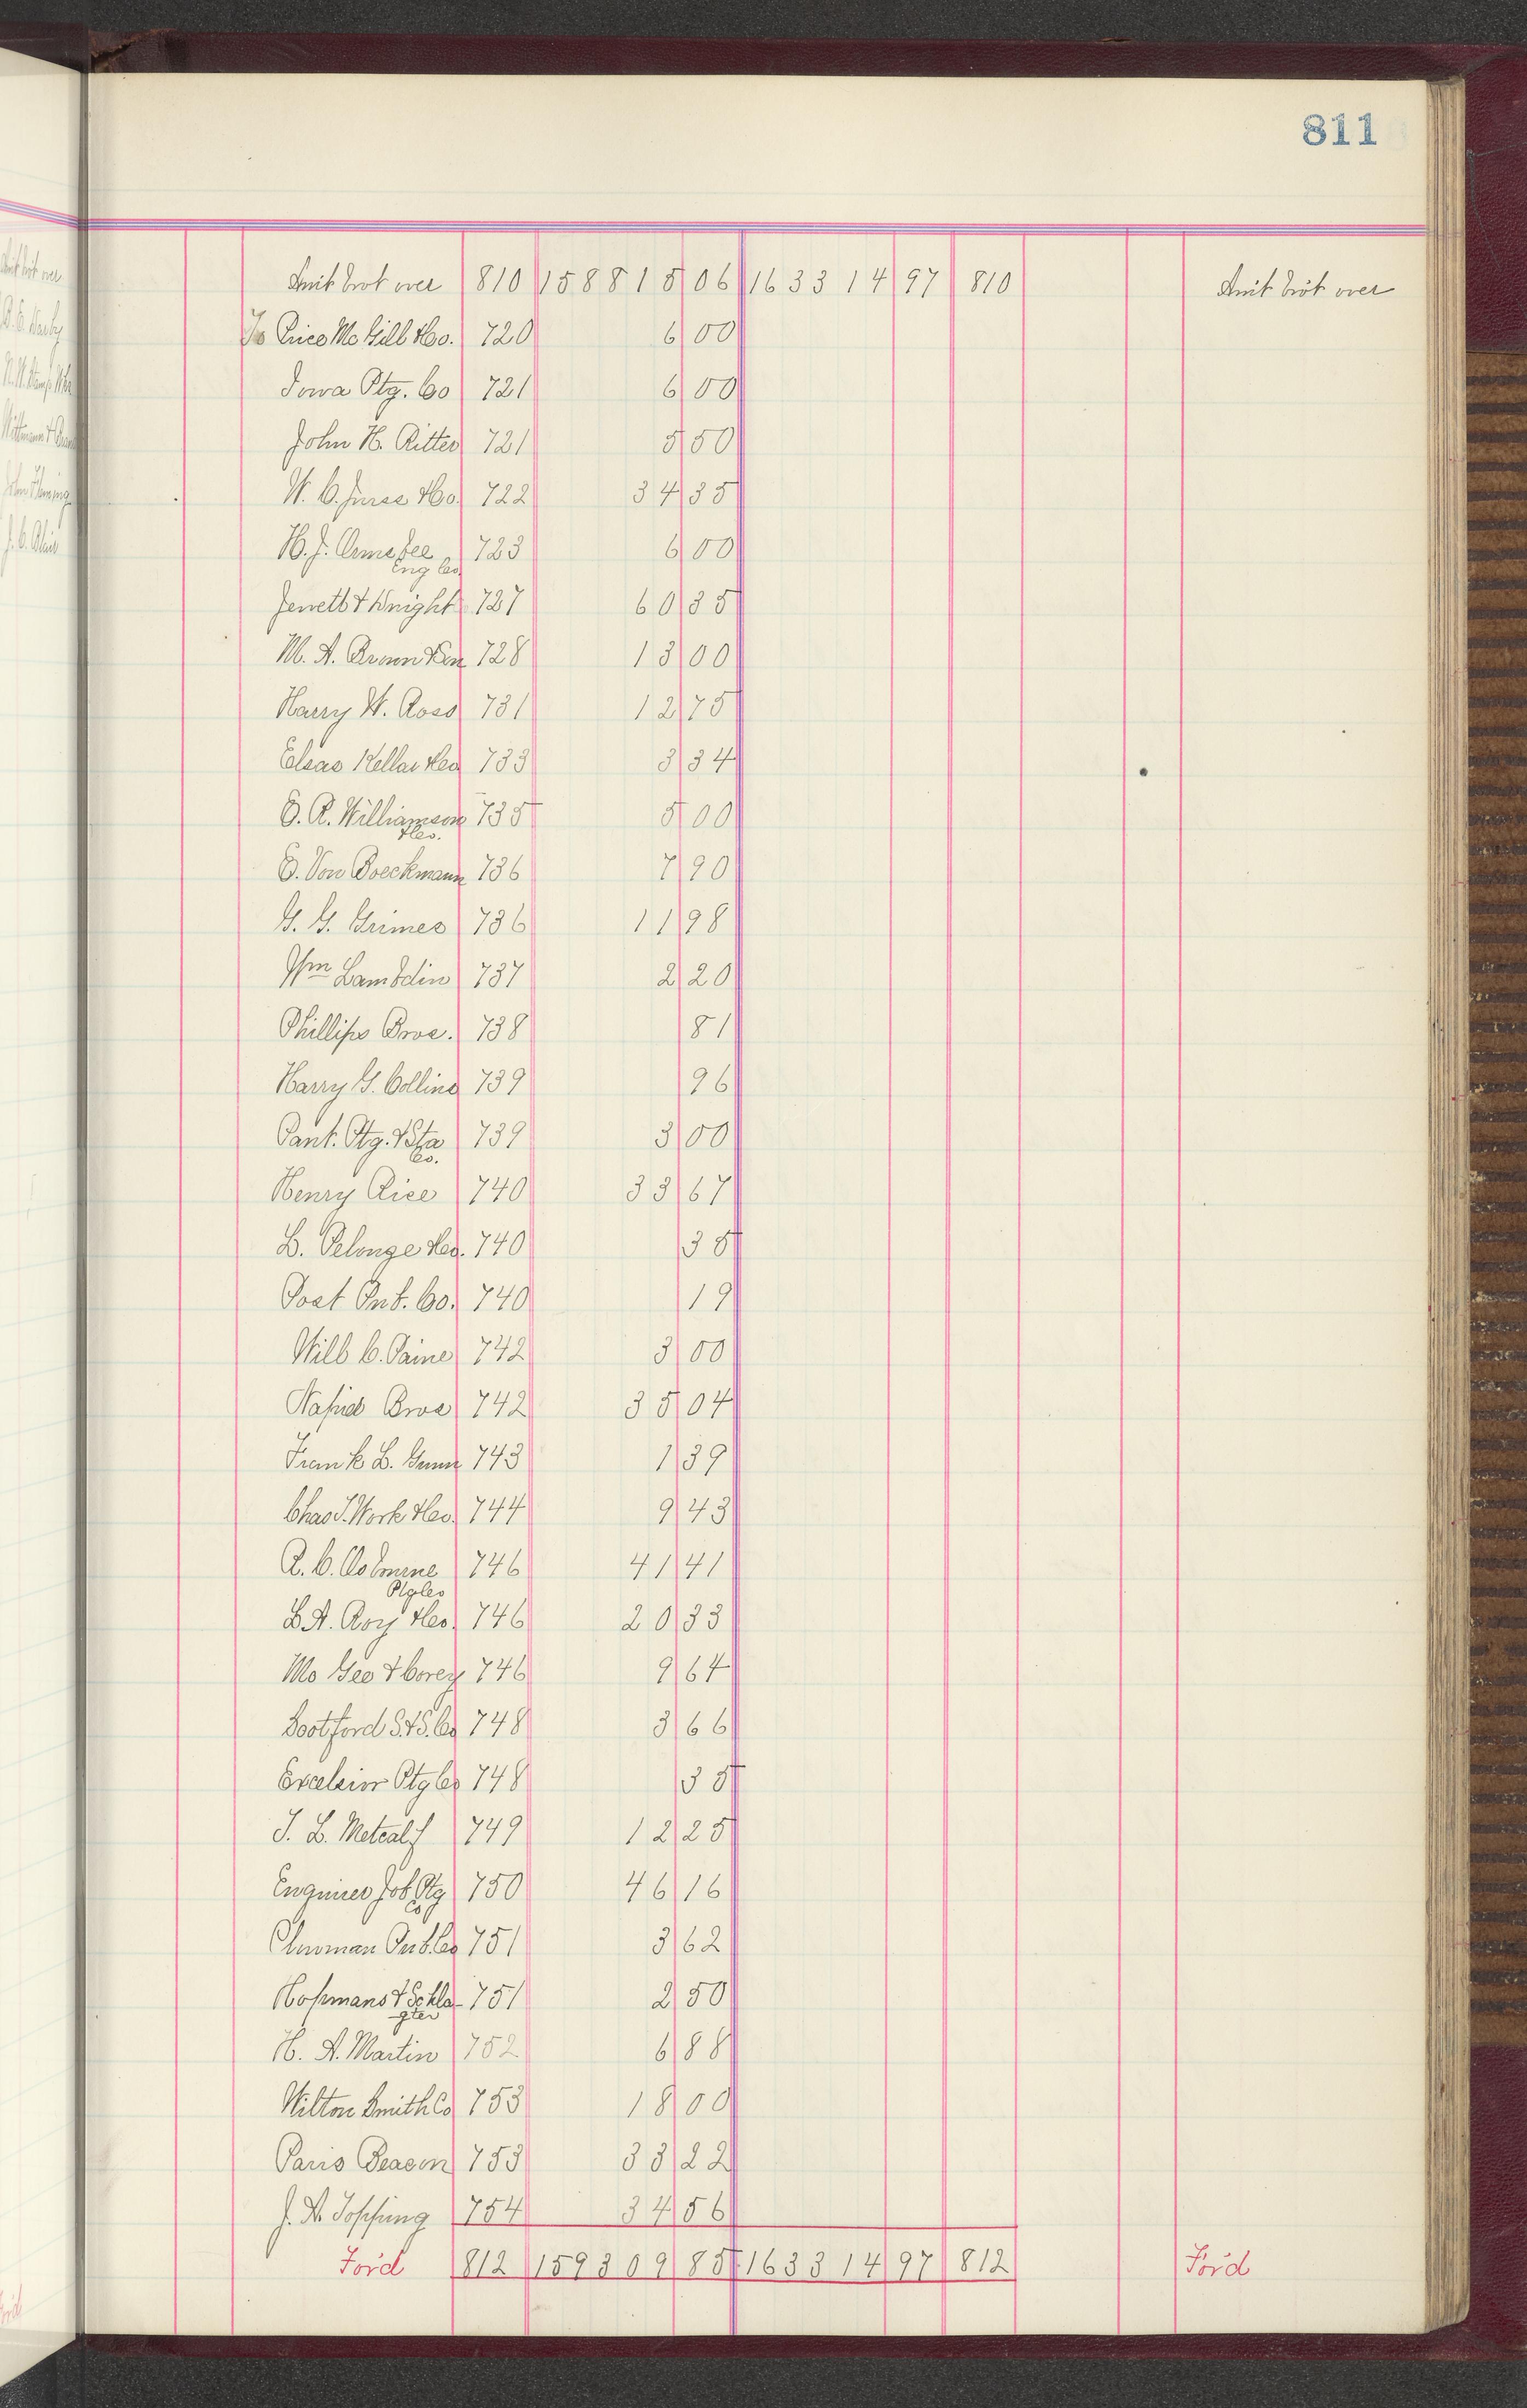 811
Amt brot over 810 158815 06 163314 97 810 Amt brot over
To Price McGill &Co. 720 6 00
Iowa Ptg. Co 721 6 00
John H. Ritter 721 5 50
W. C. &Co. 722 34 35
H. J. Armstee Eng Co. 723 6 00
Jewett & Knight 727 60 35
M. A. 728 13 00
Harry W. Ross 731 12 75
Elsas Keller &Co 733 3 34
E. R. Williamson &Co. 735 5 00
E. Von Boeckmann 736 7 90
G. G. Grimes 736 11 98
Wm Lambdin 737 2 20
Phillips Bros. 738 81
Harry G. Collins 739 96
Pant. Ptg. &Sta Co. 739 3 00
Henry Rice 740 33 67
L. Pelonge &Co. 740 35
Post Pub. Co. 740 19
Will C. Paine 742 3 00
Napier Bros 742 35 04
Frank L. Gunn 743 1 39
Chas S. Work &Co. 744 9 43
R. C. Osborne Ptg Co 746 41 41
L A. Roy &Co. 746 20 33
Mo Gee & Corey 746 9 64
Bostford S. & S. Co 748 3 66
Excelsior Ptg Co 748 35
J. L. Metcalf 749 12 25
Enquirer Job Ptg Co 750 46 16
Pub. Co 751 3 62
Hofmans & Schlagter 751 2 50
H. A. Martin 752 6 88
Wilton Smith Co 753 18 00
Paris Beacon 753 33 22
J. N. Topping 754 34 56
For'd 812 159309 85 163314 97 812 For'd